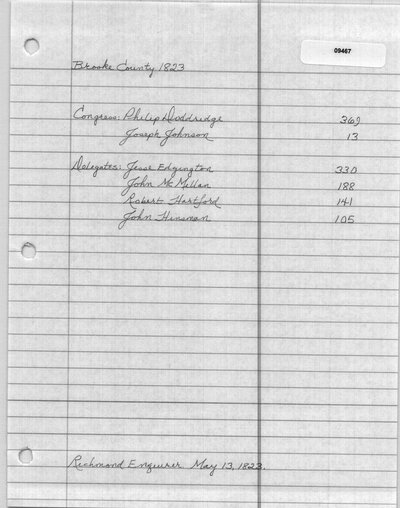 09467
Brooke County 1823
Congress: Philip Doddridge 362
Joseph Johnson 13
Delegates: Jesse Edgington 330
John McMillan 188
Robert Hartford 141
John Hinsman 105
Richmond Enquirer May 13, 1823.